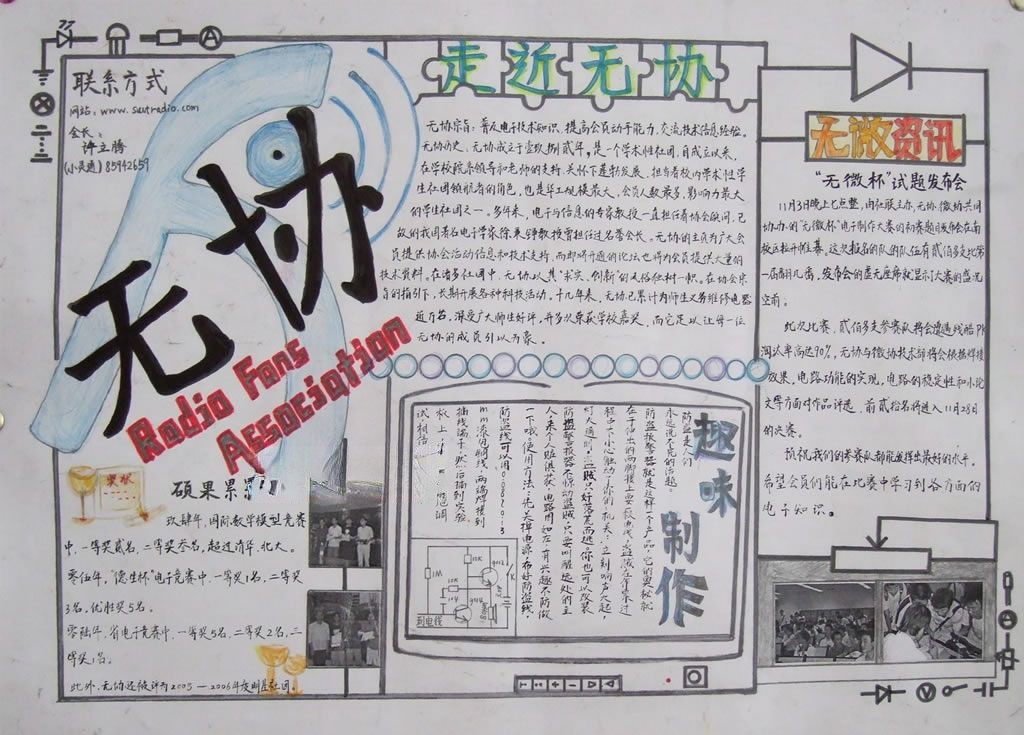 联系方式
网站: www.scutradio.com
会长:
许立腾
(小灵通) 85942659
无协
Radio Fans
Association
硕果累累
玖肆年,国际数学模型竞赛
中,一等奖贰名,二等奖叁名,超过清华、北大。
零伍年,"德生杯"电子竞赛中,一等奖1名,二等奖
3名,优胜奖5名。
零陆年,省电子竞赛中,一等奖5名,二等奖2名,三
等奖1名。
此外,无协还被评为2005—2006年度明星社团。
走近无协
无协宗旨:普及电子技术知识,提高会员动手能力,交流技术信息经验。
无协历史:无协成立于壹玖捌贰年,是一个学术性社团,自成立以来,
在学校院系领导和老师的支持、关怀下蓬勃发展,担当着校内学术性学
生社团领航者的角色,也是年上规模最大,会员人数最多,影响力最大
的学生社团之一。多年来,电子与信息的专家教授一直担任着协会顾问,已
故的我国著名电子学家徐秉铮教授曾担任过名誉会长。无协的主页为广大会
员提供协会活动信息和技术支持,而即将开通的论坛也将为会员提供大量的
技术资料。在诸多社团中,无协以其"求实、创新"的风格独树一帜。在协会宗
旨的指引下,长期开展各种科技活动,十几年来,无协已累计为师生义务维修电器
近万台,深受广大师生好评,并多次荣获学校嘉奖,而它足以让每一位
无协的成员引以为豪。
趣味制作
防盗是人们
永远说不完的话题。
防盗报警器就是这样一个产品,它的奥秘就
在于伸出的两脚接上一条
程中不小心触动了你的"机关",立刻响声大起,
灯大通明,盗贼只好落荒而逃。你也可以改装
防盗警报器不惊动盗贼,只要叫醒远处的主
人,来个人赃俱获。电路图如左,有兴趣不防做
一下哦。使用方法:先关掉电源,布好防盗线,
防盗线可以用
mm漆包铜线,两端焊接到
插线端子,然后插到实验
板上
试相信
1M
10K
10K
9012
K
到电线
无微资讯
"无微杯"试题发布会
11月3日晚上七点整,由社联主办,无协、微协共同
协办的"无微杯"电子制作大赛的初赛题目发布会在南
校区拉开帷幕,这次报名的队的队伍有贰佰多支比第
一届翻几番,发布会的座无虚席就显示了大赛的盛况
空前。
此次比赛,贰佰多支参赛队将会遭遇残酷PK
淘汰率高达90%,无协与微协技术部将会根据焊接
效果,电路功能的实现,电路的稳定性和小论
文等方面对作品评选,前贰拾名将进入11月28日
的决赛。
预祝我们的参赛队都能发挥出最好的水平。
希望会员们能在比赛中学习到各方面的
电子知识。